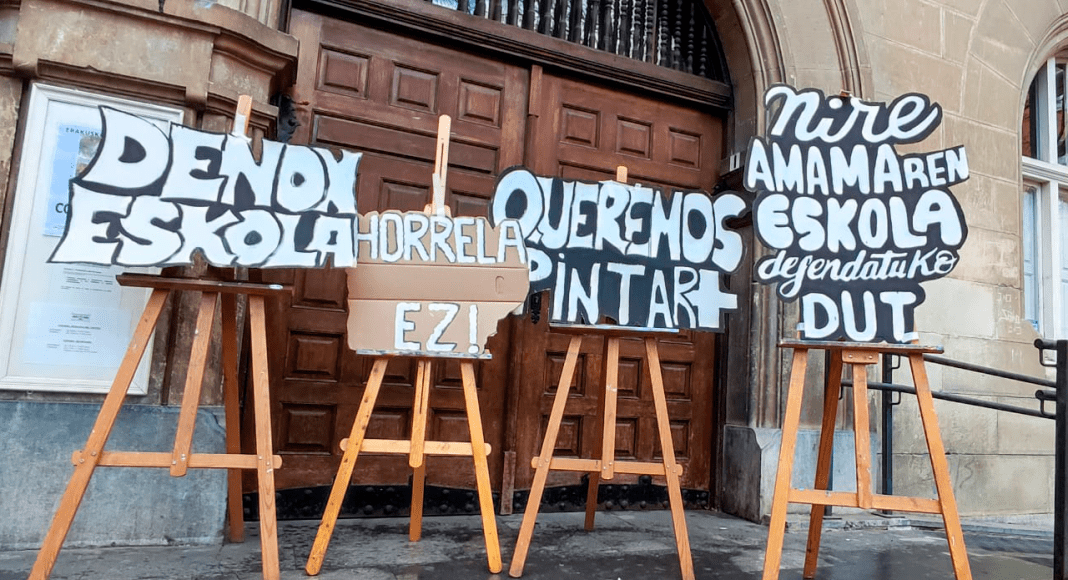 DENON
ESKOLA
HORRELA
EZ!
QUEREMOS
PINTAR+
Nire
AMAMAREN
ESKOLA
defendatuko
DUT